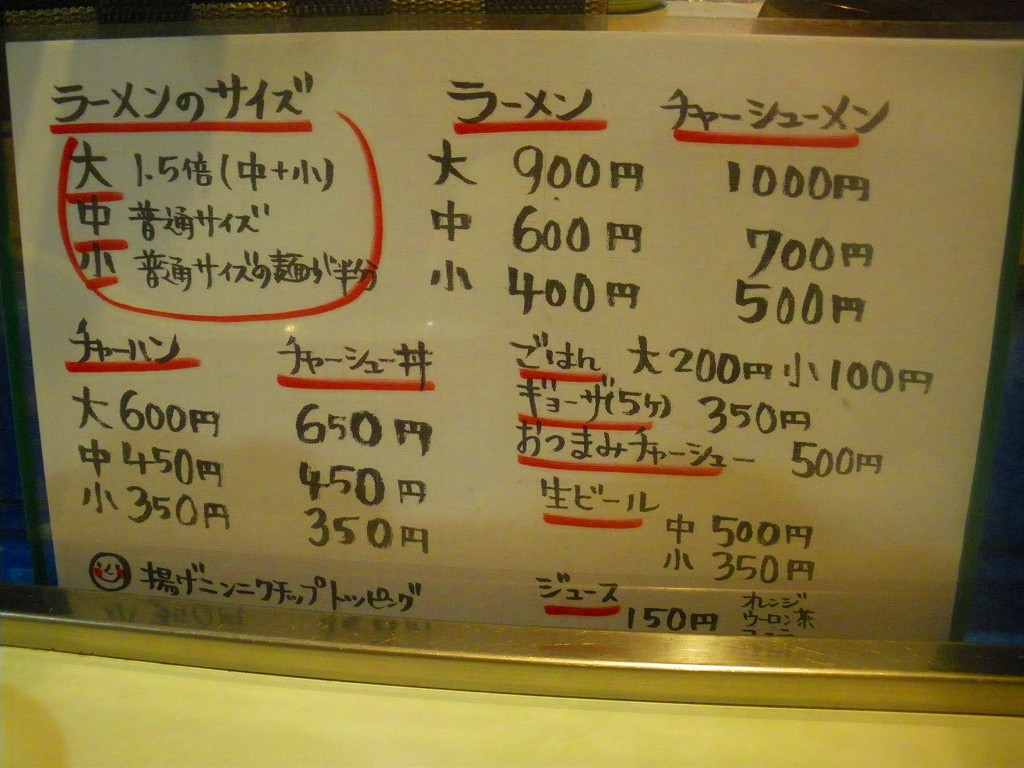 ラーメンのサイズ
大 1.5倍(中+小)
中 普通サイズ
小 普通サイズの麺が半分
ラーメン チャーシューメン
大 900円 1000円
中 600円 700円
小 400円 500円
チャーハン チャーシュー丼
大 600円 650円
中 450円 450円
小 350円 350円
揚げニンニクチップトッピング
ごはん 大200円 小100円
ギョーザ(5ヶ) 350円
おつまみチャーシュー 500円
生ビール
中 500円
小 350円
ジュース 150円
オレンジ
ウーロン茶